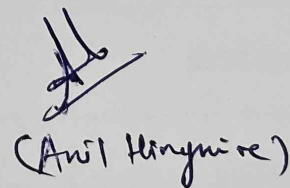 (Anil Hingmire)